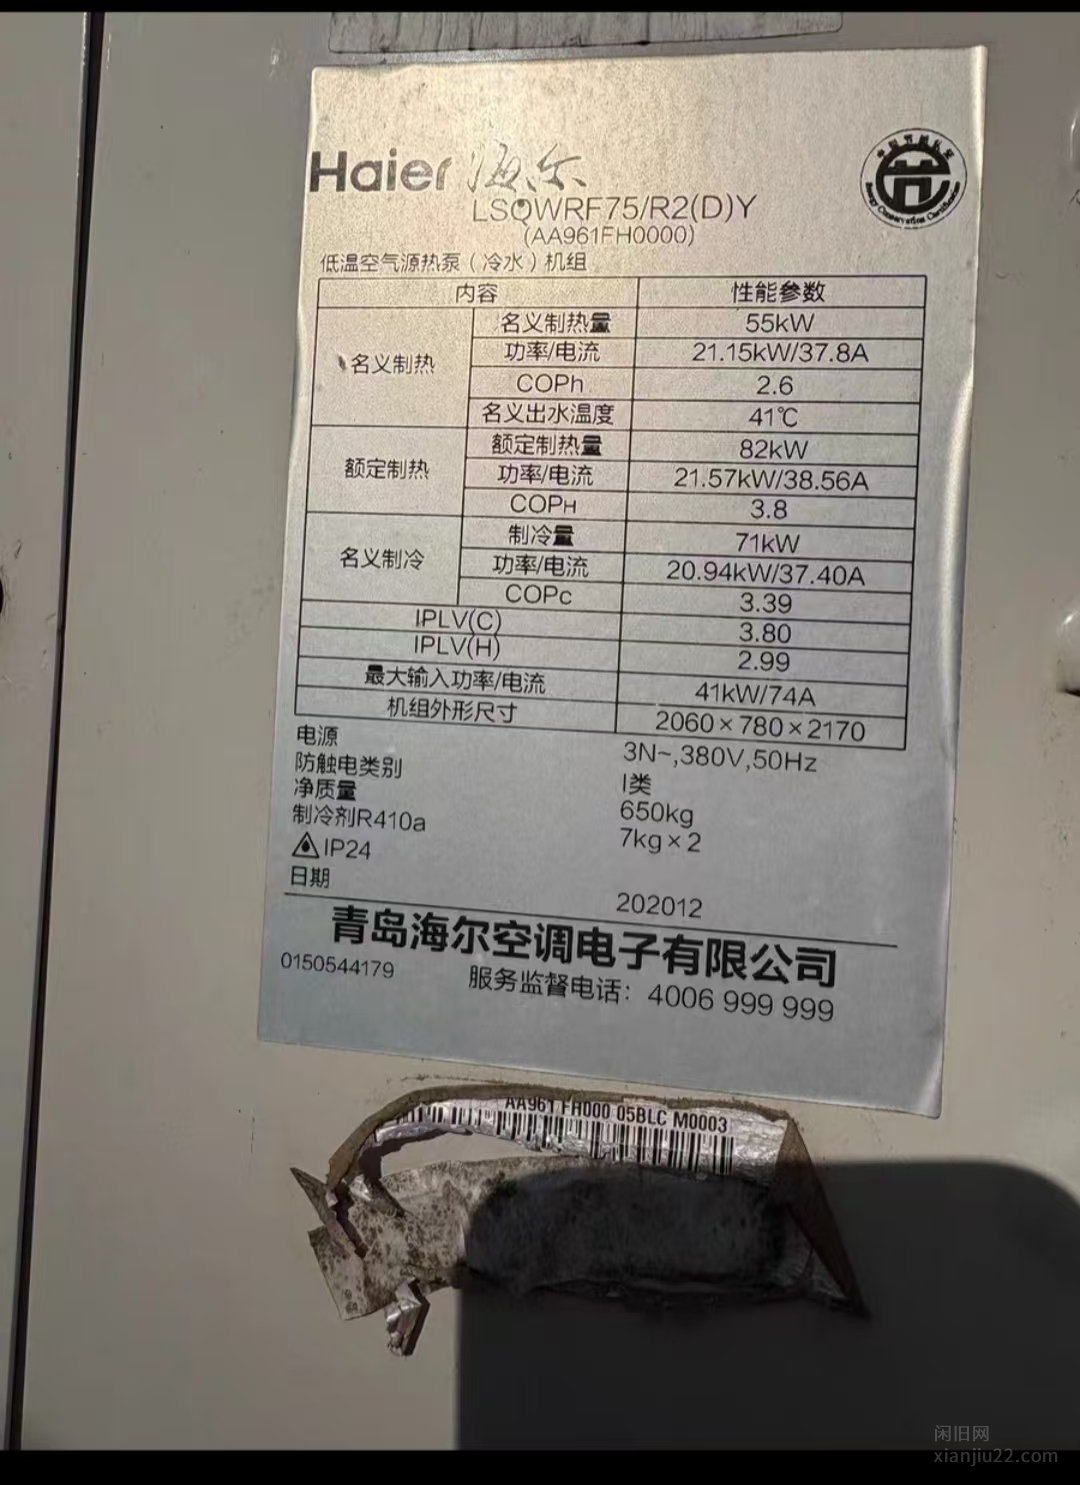 Haier 海尔
LSQWRF75/R2(D)Y
(AA961FH0000)
低温空气源热泵（冷水）机组
内容 性能参数
名义制热 名义制热量 55kW
功率/电流 21.15kW/37.8A
COPh 2.6
名义出水温度 41℃
额定制热 额定制热量 82kW
功率/电流 21.57kW/38.56A
COPH 3.8
名义制冷 制冷量 71kW
功率/电流 20.94kW/37.40A
COPc 3.39
IPLV(C) 3.80
IPLV(H) 2.99
最大输入功率/电流 41kW/74A
机组外形尺寸 2060×780×2170
电源 3N~,380V,50Hz
防触电类别 I类
净质量 650kg
制冷剂R410a 7kg×2
IP24
日期 202012
青岛海尔空调电子有限公司
0150544179 服务监督电话：4006 999 999
AA961FH000 05BLC M0003
闲旧网
xianjiu22.com